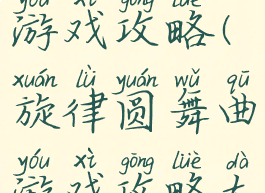 yóu xì gōng lüè
游戏攻略(
xuán lǜ yuán wǔ qū
旋律圆舞曲
yóu xì gōng lüè dà
游戏攻略大